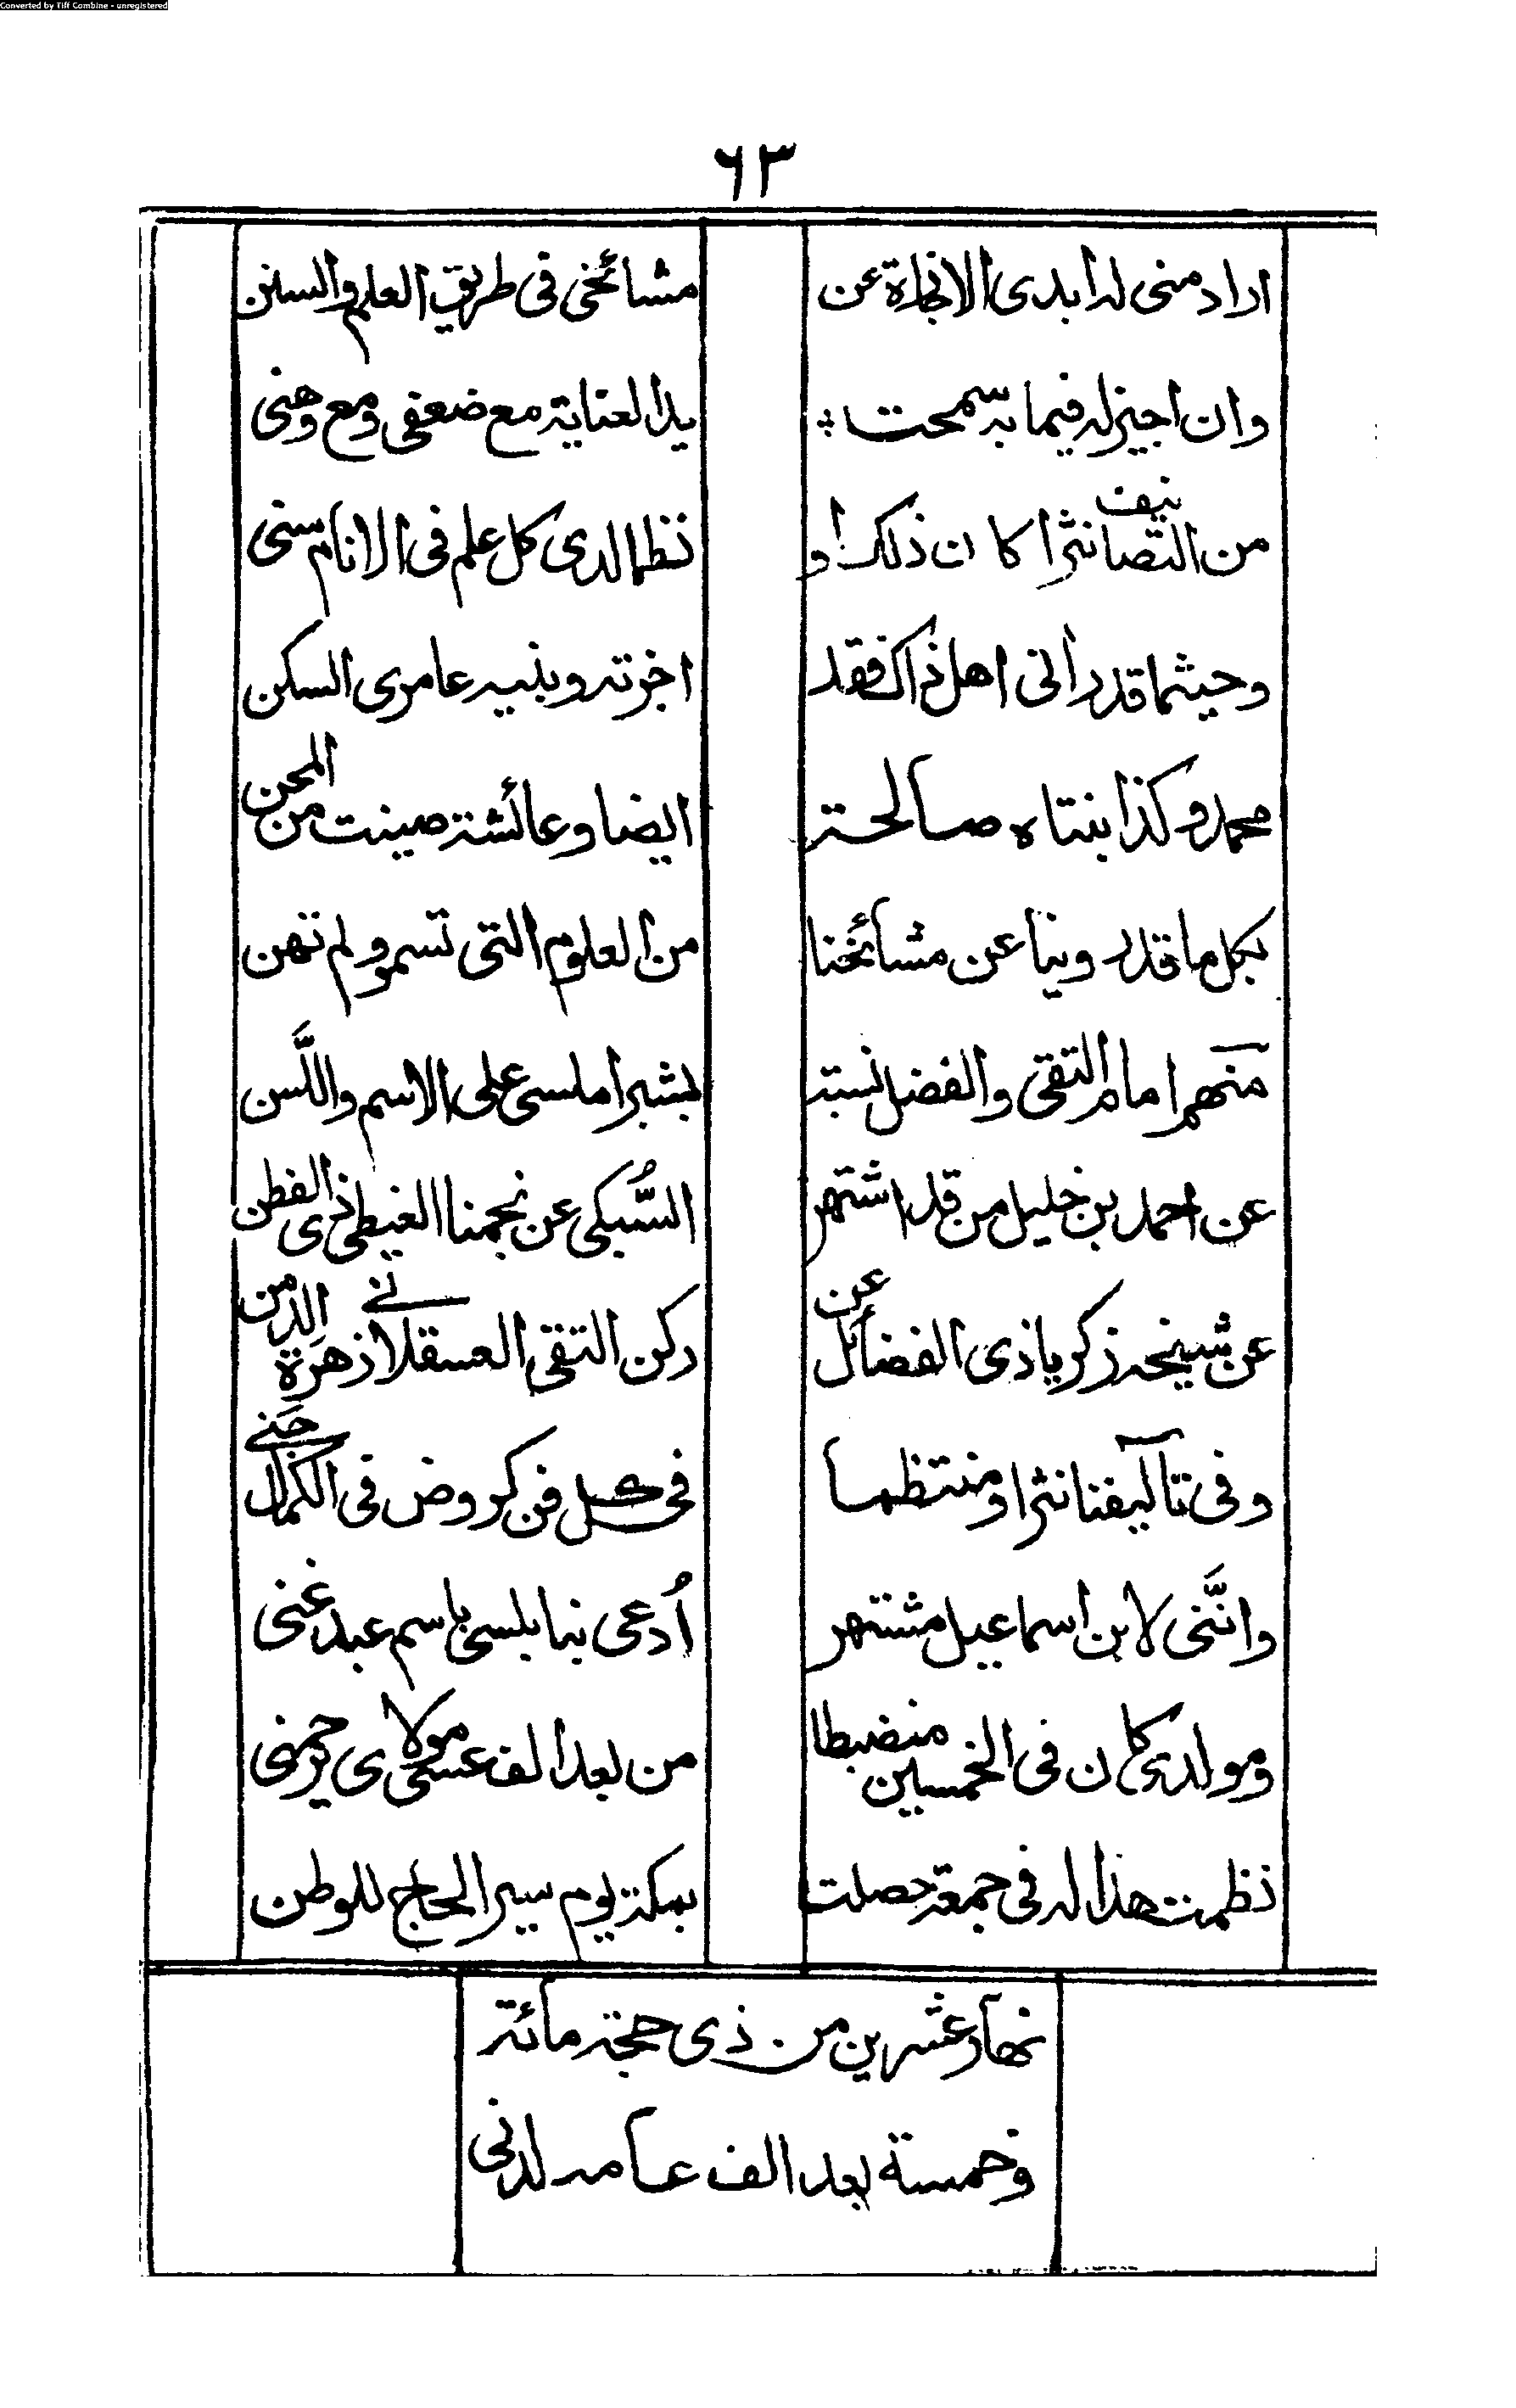 Converted by Tiff Combine - unregistered
٦٣
اراد منى له ابدى الاجازة عن مشائخى فى طريق العلم والسنن
وان اجيز له فيما به سمحت يد العناية مع ضعفى ومع وهنى
من التصانيف نثرا كان ذلك او نظما لدى كل علم فى الانام سنى
وحيثما قد رانى اهل ذاك فقد اجزته وبنيه عامرى السكن
محمد وكذا بنتاه صالحة ايضا وعائشة صينت من المحن
بكل ما قد روينا عن مشائخنا من العلوم التى تسمو ولم تهن
منهم امام التقى والفضل نسبته لشبراملسى على الاسم واللَّسن
عن احمد بن خليل من قد اشتهر السُّبكى عن نجمنا الغيطى ذى الفطن
عن شيخه زكريا ذى الفضائل عن ركن التقى العسقلانى زهرة الدمن
وفى تآليفنا نثرا ومنتظما فى كل فن كروض فى الكمال جنى
وانَّنى لابن اسماعيل مشتهر اُدعى بنابلسى باسم عبد غنى
ومولدى كان فى الخمسين منضبطا من بعد الف عسى مولاى يرحمنى
نظمت هذا له فى جمعة حصلت بمكة يوم سير الحاج للوطن
نهار عشرين من ذى حجة مائة
وخمسة بعد الف عامه لدنى